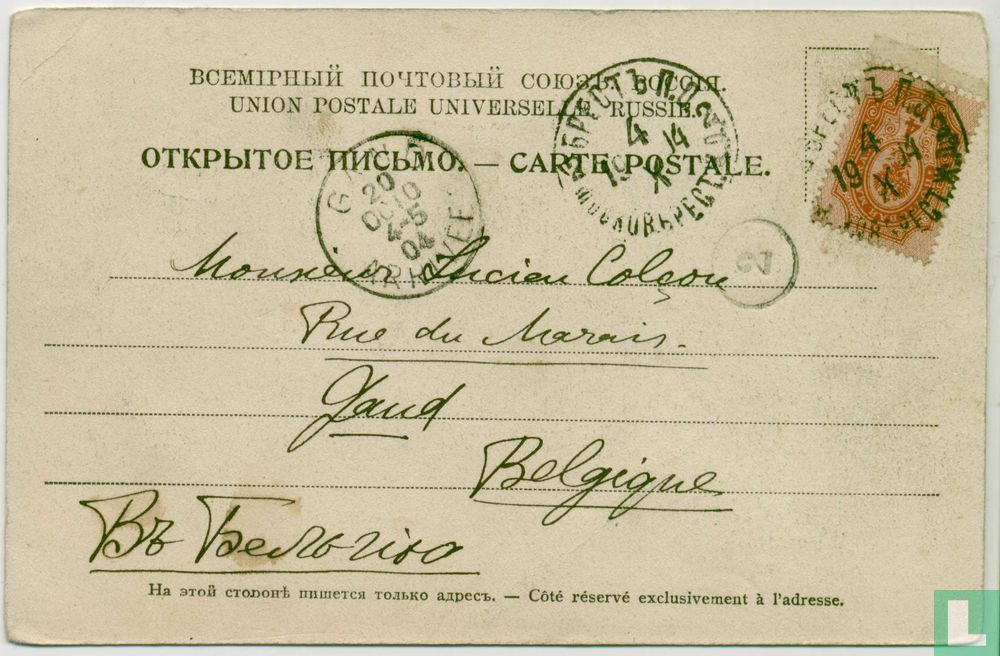 ВСЕМІРНЫЙ ПОЧТОВЫЙ СОЮЗЪ. РОССІЯ.
UNION POSTALE UNIVERSELLE. RUSSIE.
ОТКРЫТОЕ ПИСЬМО. — CARTE POSTALE.
БРЕСТЪ
4
X
14
МОСКОВ. БРЕСТ.
4
19
14
X
20
OCT
04
ARRIVEE
2
Monsieur Lucien Colson
Rue du Marais.
Gand
Belgique
Въ Бельгію
На этой сторонѣ пишется только адресъ. — Côté réservé exclusivement à l'adresse.
L